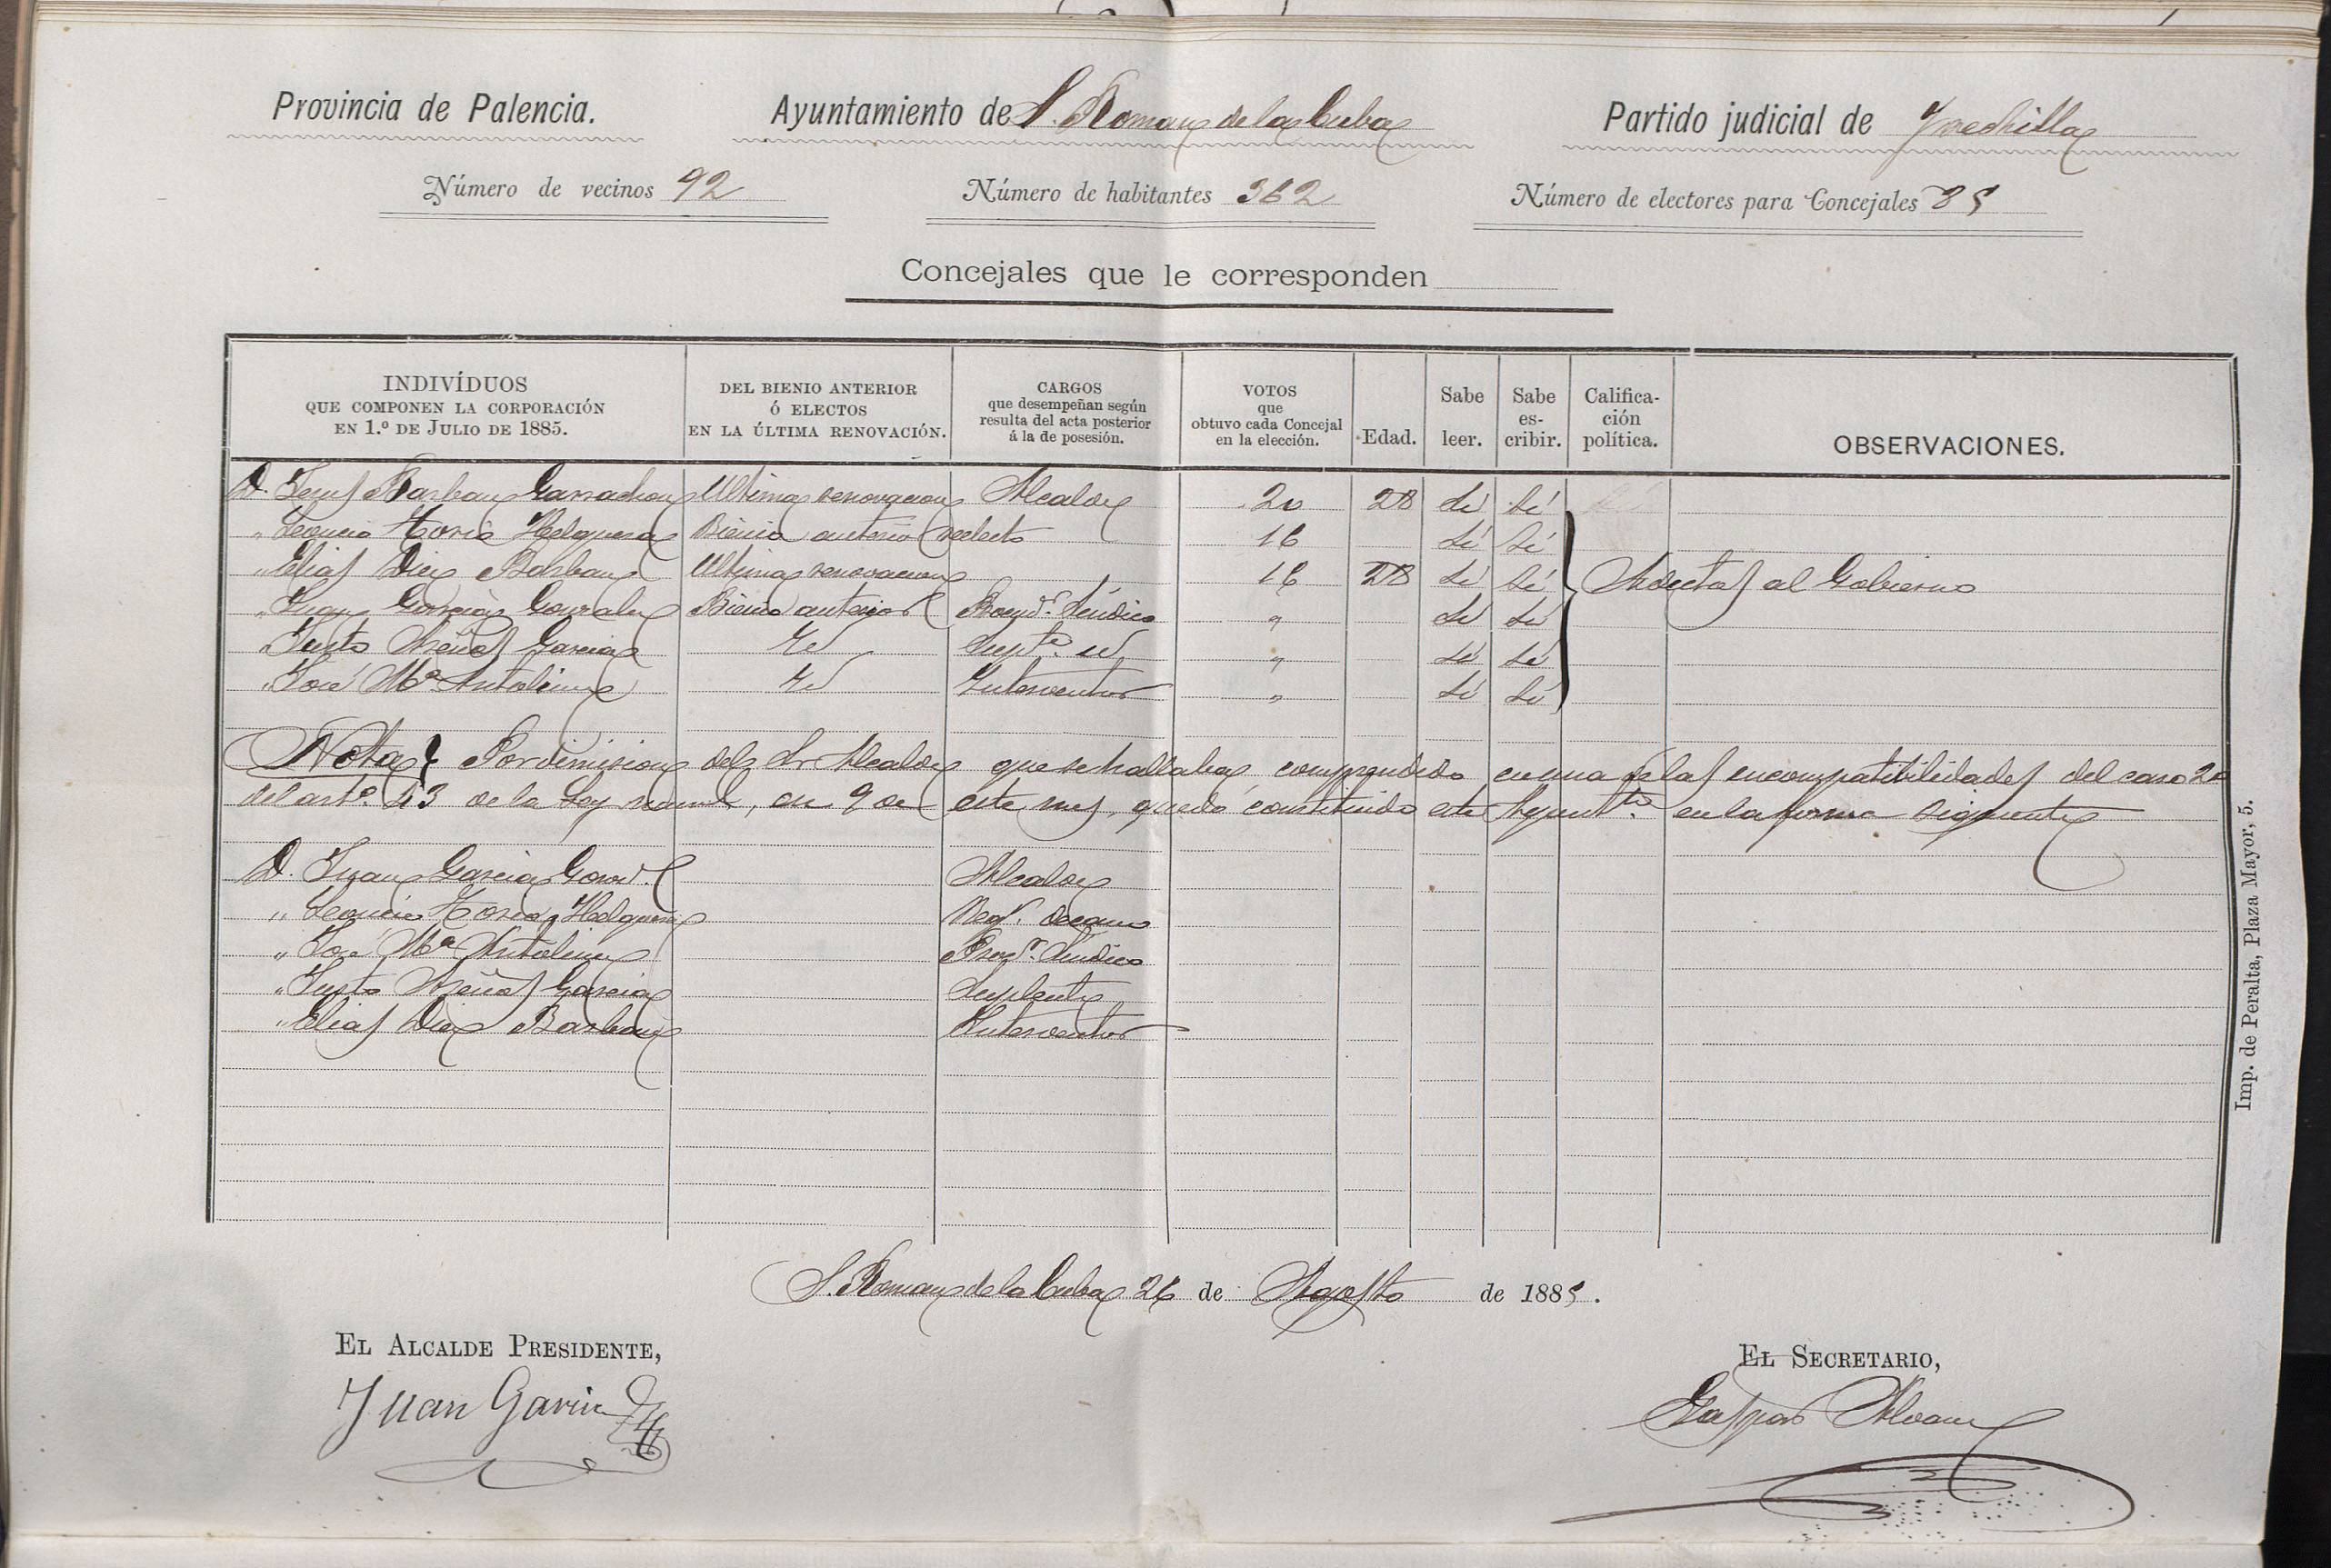 Provincia de Palencia. Ayuntamiento de S. Roman de la Cuba Partido judicial de Frechilla
Número de vecinos 92 Número de habitantes 362 Número de electores para Concejales 85
Concejales que le corresponden
INDIVÍDUOS QUE COMPONEN LA CORPORACIÓN EN 1.º DE JULIO DE 1885. DEL BIENIO ANTERIOR Ó ELECTOS EN LA ÚLTIMA RENOVACIÓN. CARGOS que desempeñan según resulta del acta posterior á la de posesión. VOTOS que obtuvo cada Concejal en la elección. Edad. Sabe leer. Sabe escribir. Calificación política. OBSERVACIONES.
D. Jesus Barban Garrachon Ultima renovacion Alcalde 20 28 Sí Sí
" Leoncio Helguera Bienio anterior reelecto 16 Sí Sí
" Elias Diez Barban Ultima renovacion 16 28 Sí Sí Adictos al Gobierno
" Juan Garcia Gonzalez Bienio anterior Procr. Síndico " Sí Sí
" Justo Garcia Id Supte. id " Sí Sí
" José Mª Antolinez Id Interventor " Sí Sí
Nota Por dimision del Sr Alcalde que se hallaba comprendido en una de las encompatibilidades del caso 2º
del artº. 43 de la Ley munl, en 9 de este mes, quedó constituido este Ayuntto. en la forma siguiente
D. Juan Garcia Gonz. Alcalde
" Leoncio Helguera Regr. decano
" José Mª Antolinez Procr. Síndico
" Justo Garcia Suplente
" Elias Diez Barban Interventor
S. Roman de la Cuba 26 de Agosto de 1885.
EL ALCALDE PRESIDENTE, EL SECRETARIO,
Juan Garcia Gaspar
Imp. de Peralta, Plaza Mayor, 5.